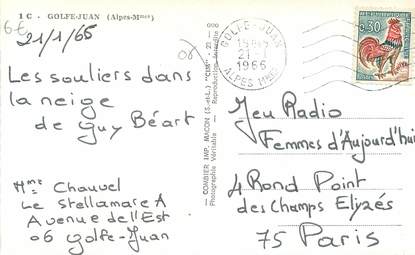 1 C - GOLFE-JUAN (Alpes-Mmes)
6€
21/1/65
06
Les souliers dans
la neige
de Guy Béart
Mme Chauvel
Le Stellamare A
Avenue de l'Est
06 Golfe-Juan
COMBIER IMP. MACON (S.-et-L.) "CIM" - 21 -
Photographie Véritable - Reproduction Interdite
GOLFE-JUAN
21 - 1
1966
ALPES MMES
0,30
Jeu Radio
Femmes d'Aujourd'hui
4 Rond Point
des Champs Elyzés
75 Paris